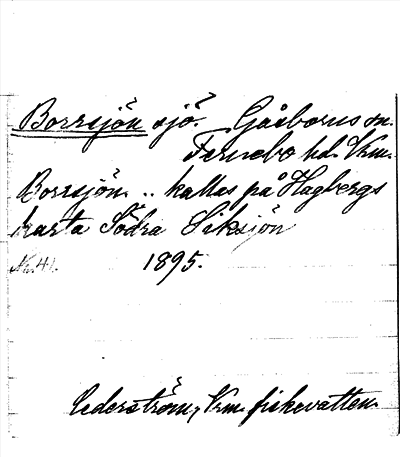 Borrsjön sjö. Gåsborns sn.
Fernebo hd. Vrm.
Borrsjön .. kallas på Hagbergs
karta Södra Siksjön
Nr. 41. 1895.
Cederström, Vrm. fiskevatten.